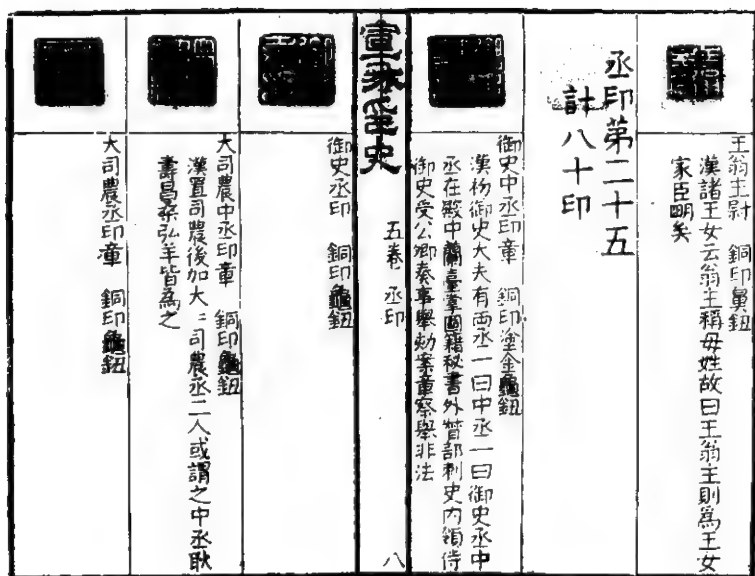 王翁主尉　銅印鼻鈕
漢諸王女云翁主稱母姓故曰王翁主則為王女
家臣明矣
丞印第二十五
計八十印
御史中丞印章　銅印塗金龜鈕
漢初御史大夫有両丞一曰中丞一曰御史丞中
丞在殿中蘭臺掌圖籍秘書外督部刺史内領侍
御史受公卿奏事舉劾案章察舉非法
宣和集古印史
五卷　丞印
八
御史丞印　銅印龜鈕
大司農中丞印章　銅印龜鈕
漢置司農後加大＝司農丞二人或謂之中丞耿
壽昌桑弘羊皆為之
大司農丞印章　銅印龜鈕